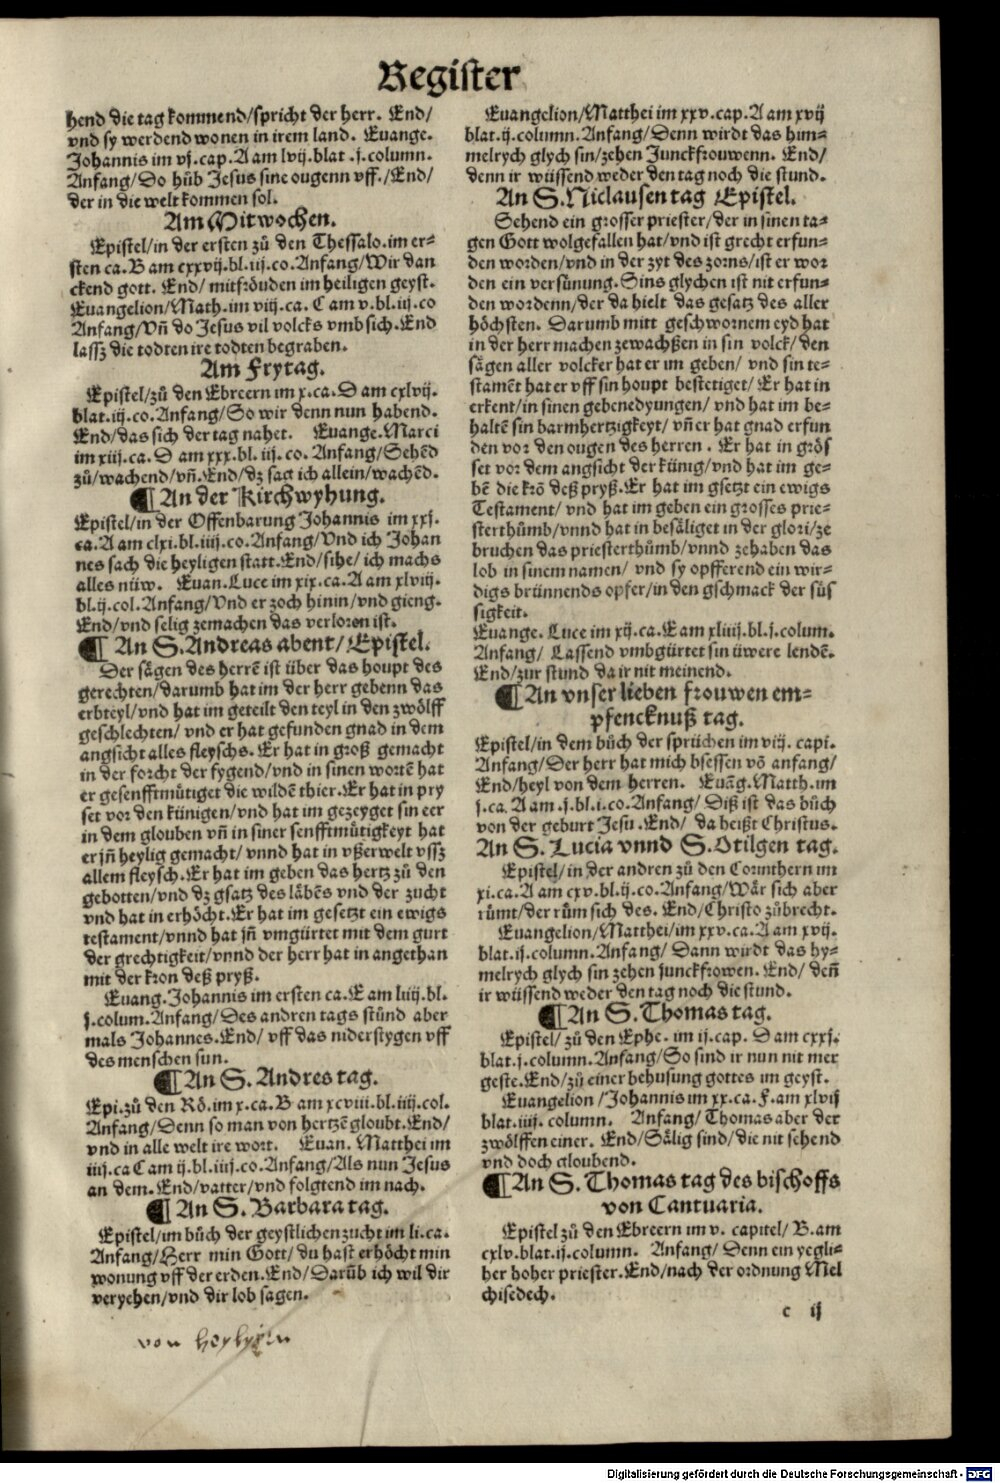 Register
hend die tag kommend/spricht der herr. End/
vnd sy werdend wonen in irem land. Euange.
Johannis im vj.cap.A am lvij.blat .j.column.
Anfang/So hůb Jesus sine ougenn vff./End/
der in die welt kommen sol.
Am Mitwochen.
Epistel/in der ersten zů den Thessalo.im er=
sten ca.B am cxxvij.bl.iij.co.Anfang/Wir dan
ckend gott. End/ mitfröuden im heiligen geyst.
Euangelion/Math.im viij.ca. C am v.bl.iij.co
Anfang/Vñ do Jesus vil volcks vmb sich.End
lassz die todten ire todten begraben.
Am Frytag.
Epistel/zů den Ebreern im x.ca.D am cxlvij.
blat.iij.co.Anfang/So wir denn nun habend.
End/das sich der tag nahet. Euange.Marci
im xiij.ca.D am xxx.bl. iij.co. Anfang/Sehẽd
zů/wachend/vñ.End/dz sag ich allein/wachẽd.
¶ An der Kirchwyhung.
Epistel/in der Offenbarung Johannis im xxj.
ca.A am clxi.bl.iiij.co.Anfang/Vnd ich Johan
nes sach die heyligen statt.End/sihe/ ich machs
alles nüw. Euan.Luce im xix.ca.A am xlviij.
bl.ij.col.Anfang/Vnd er zoch hinin/vnd gieng.
End/vnd selig zemachen das verloren ist.
¶ An S.Andreas abent/Epistel.
Der sägen des herrẽ ist über das houpt des
gerechten/darumb hat im der herr gebenn das
erbteyl/vnd hat im geteilt den teyl in den zwölff
geschlechten/ vnd er hat gefunden gnad in dem
angsicht alles fleyschs. Er hat in groß gemacht
in der forcht der fygend/vnd in sinen wortẽ hat
er gesenfftmütiget die wildẽ thier.Er hat in pry
set vor den künigen/vnd hat im gezeyget sin eer
in dem glouben vñ in siner senfftmütigkeyt hat
er jñ heylig gemacht/ vnnd hat in vßerwelt vssz
allem fleysch.Er hat im geben das hertz zů den
gebotten/vnd dz gsatz des läbẽs vnd der zucht
vnd hat in erhöcht.Er hat im gesetzt ein ewigs
testament/vnnd hat jñ vmgürtet mit dem gurt
der grechtigkeit/vnnd der herr hat in angethan
mit der kron deß pryß.
Euang.Johannis im ersten ca.E am liiij.bl.
j.colum.Anfang/Des andren tags stůnd aber
mals Johannes.End/ vff das niderstygen vff
des menschen sun.
¶ An S. Andres tag.
Epi.zů den Rö.im x.ca.B am xcviii.bl.iiij.col.
Anfang/Denn so man von hertzẽ gloubt.End/
vnd in alle welt ire wort. Euan. Matthei im
iiij.ca C am ij.bl.iiij.co.Anfang/Als nun Jesus
an dem.End/vatter/vnd folgtend im nach.
¶ An S.Barbara tag.
Epistel/im bůch der geystlichen zucht im li.ca.
Anfang/Herr min Gott/du hast erhöcht min
wonung vff der erden.End/Darũb ich wil dir
veryehen/vnd dir lob sagen.
von heyligen
Euangelion/Matthei im xxv.cap.A am xvij
blat.ij.column.Anfang/Denn wirdt das him=
melrych glych sin/zehen Junckfrouwenn. End/
denn ir wüssend weder den tag noch die stund.
An S.Niclausen tag Epistel.
Sehend ein grosser priester/der in sinen ta=
gen Gott wolgefallen hat/vnd ist grecht erfun=
den worden/vnd in der zyt des zorns/ist er wor
den ein versünung.Sins glychen ist nit erfun=
den wordenn/der da hielt das gesatz des aller
höchsten. Darumb mitt geschwornem eyd hat
in der herr machen zewachßen in sin volck/den
sägen aller volcker hat er im geben/ vnd sin te=
stamẽt hat er vff sin houpt bestetiget/ Er hat in
erkent/in sinen gebenedyungen/ vnd hat im be=
haltẽ sin barmhertzigkeyt/ vñ er hat gnad erfun
den vor den ougen des herren . Er hat in grös
set vor dem angsicht der künig/vnd hat im ge=
bẽ die krõ deß pryß.Er hat im gsetzt ein ewigs
Testament/ vnd hat im geben ein grosses prie=
sterthůmb/vnnd hat in besäliget in der glori/ze
bruchen das priesterthůmb/vnnd zehaben das
lob in sinem namen/ vnd sy opfferend ein wir=
digs brünnends opfer/in den gschmack der süs
sigkeit.
Euange. Luce im xij.ca.E am xliiij.bl.j.colum.
Anfang/ Lassend vmbgürtet sin üwere lendẽ.
End/zur stund da ir nit meinend.
¶ An vnser lieben frouwen em=
pfencknuß tag.
Epistel/in dem bůch der sprüchen im viij. capi.
Anfang/Der herr hat mich bsessen võ anfang/
End/heyl von dem herren. Euãg.Matth.im
j.ca. A am .j.bl.i.co.Anfang/ Diß ist das bůch
von der geburt Jesu .End/ da heißt Christus.
An S. Lucia vnnd S.Otilgen tag.
Epistel/in der andren zů den Corinthern im
xi.ca.A am cxv.bl.ij.co.Anfang/Wär sich aber
rümt/der rüm sich des. End/Christo zůbrecht.
Euangelion/Matthei/im xxv.ca.A am xvij.
blat.ij.column.Anfang/ Dann wirdt das hy=
melrych glych sin zehen junckfrowen. End/ deñ
ir wüssend weder den tag noch die stund.
¶ An S.Thomas tag.
Epistel/ zů den Ephe. im ij.cap. D am cxxj.
blat.j.column.Anfang/So sind ir nun nit mer
geste.End/zů einer behusung gottes im geyst.
Euangelion /Johannis im xx.ca.F.am xlvij
blat.iiij. column. Anfang/Thomas aber der
zwölffen einer. End/Sälig sind/die nit sehend
vnd doch gloubend.
¶ An S.Thomas tag des bischoffs
von Cantuaria.
Epistel zů den Ebreern im v. capitel/ B.am
cxlv.blat.ij.column. Anfang/ Denn ein yegli=
her hoher priester.End/nach der ordnung Mel
chisedech.
c ij
Digitalisierung gefördert durch die Deutsche Forschungsgemeinschaft - DFG